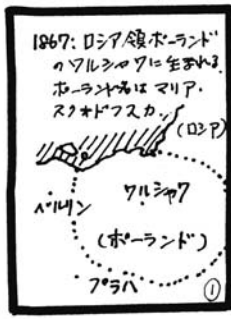 1867: ロシア領ポーランド
のワルシャワに生まれる.
ポーランド名はマリア・
スクオドフスカ.
(ロシア)
ベルリン
ワルシャワ
(ポーランド)
プラハ
①